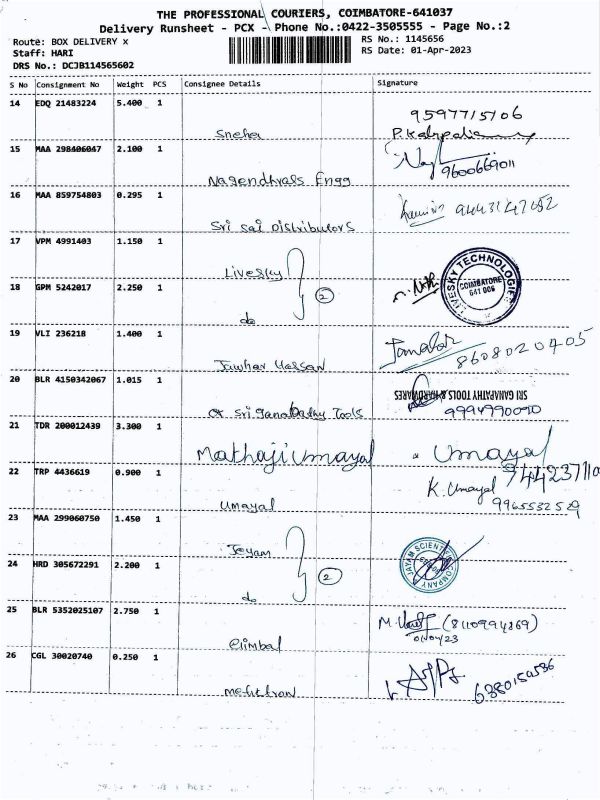 THE PROFESSIONAL COURIERS, COIMBATORE-641037
Delivery Runsheet - PCX - Phone No.:0422-3505555 - Page No.:2
Route: BOX DELIVERY x
Staff: HARI
DRS No.: DCJB114565602
RS No.: 1145656
RS Date: 01-Apr-2023
S No Consignment No Weight PCS Consignee Details Signature
14 EDQ 21483224 5.400 1
9597715106
Sneha
15 MAA 298406047 2.100 1
9600669011
Nagendhrals Engg
16 MAA 859754803 0.295 1
Sri sai Distributors
17 VPM 4991403 1.150 1
Livesky
LIVESKY TECHNOLOGIES
COIMBATORE
641 006
18 GPM 5242017 2.250 1
2
do
19 VLI 236218 1.400 1
8608020405
Jawhar Hassan
20 BLR 4150342067 1.015 1
SRI GANAPATHY TOOLS & HARDWARES
Sri Ganabathy Tools
9994990090
21 TDR 200012439 3.300 1
Mathaji umayal
Umayal
22 TRP 4436619 0.900 1
K. Umayal
9965532529
Umayal
23 MAA 299060750 1.450 1
Jeyam
JAYAM SCIENTIFIC COMPANY
24 HRD 305672291 2.200 1
2
do
25 BLR 5352025107 2.750 1
(8110994869)
01/04/23
elimbal
26 CGL 30020740 0.250 1
6380150586